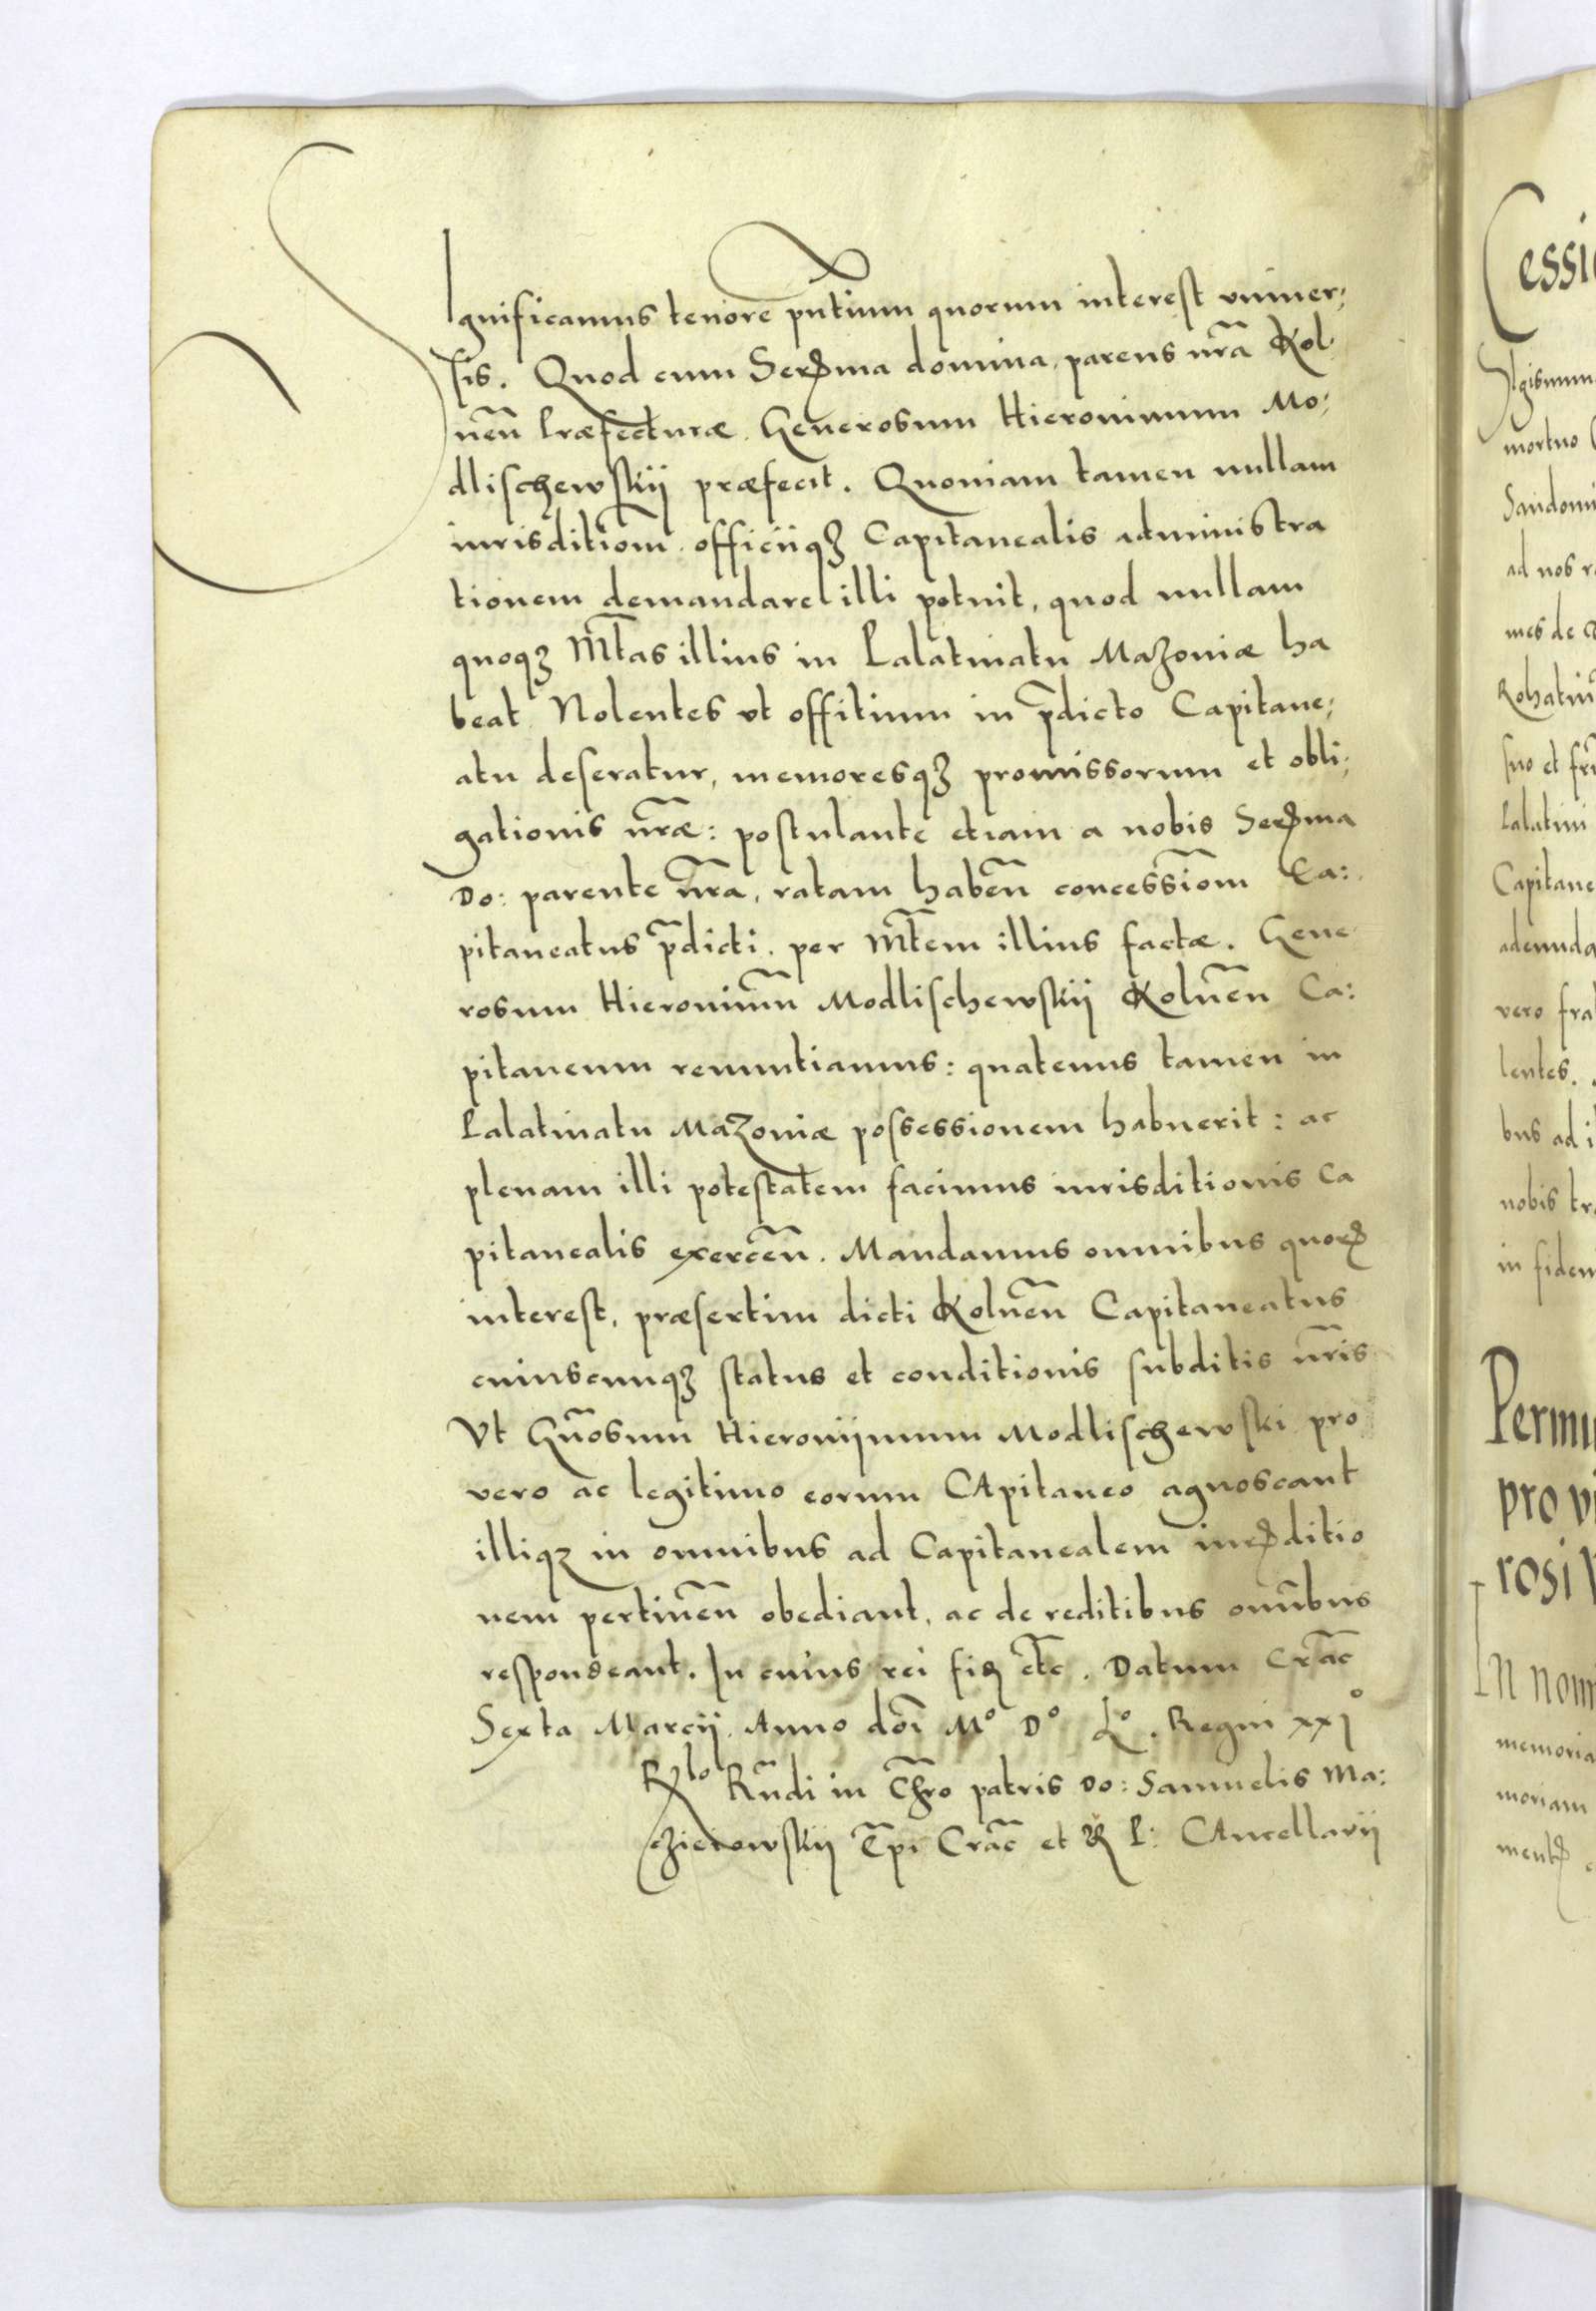 Significamus tenore pñtium quorum interest vniuer;
sis. Quod cum Serꝫma domina, parens nr̃a Kol
nen̄ Præfecturæ. Generosum Hieronimum Mo;
dlischewskij præfecit. Quoniam tamen nullam
iurisditiom̄ officiiqꝫ Capitanealis administra
tionem demandare illi potuit, quod nullam
quoqꝫ Mt̄as illius in Palatinatu Mazoniæ ha
beat. Nolentes vt offitium in p̄dicto Capitane;
atu deseratur, memoresqꝫ promissorum et obli;
gationis nr̃æ: postulante etiam a nobis Serꝫma
Do: parente nr̃a, ratam haben̄ concessiom̄ Ca:
pitaneatus p̄dicti. per Mt̄em illius factæ. Gene
rosum Hieronimu̅m Modlischewskij Kolnen̄ Ca:
pitaneum renuntiamus: quatenus tamen in
Palatinatu Mazoniæ possessionem habuerit: ac
plenam illi potestatem facimus iurisditionis Ca
pitanealis exercen̄. Mandamus omnibus quorꝫ
interest, præsertim dicti Kolnen̄ Capitaneatus
cuiuscunqꝫ status et conditionis subditis nr̃is
Vt Gn̄osum Hieronijmum Modlischewski pro
vero ac legitimo eorum CApitaneo agnoscant
illiqꝫ in omnibus ad Capitanealem iurꝫditio
nem pertinen̄ obediant, ac de reditibus omn̄bus
respondeant. In cuius rei fid etc̄. Datum Crac̄
Sexta Marcij. Anno doi̅ Mº Dº Lº. Regni xxjº
Rlo Rn̄di in Chr̄o patris Do: Samuelis Ma:
cziejowskij Ep̄i Crac̄ et R P: CAncellarij
Cessi
Sigismun
mortuo
Sandomi
ad nos r
mes de
Rohatin̄
suo et fr̄
Palatini
Capitane
adeunda
vero fra
lentes.
bus ad i
nobis tr
in fidem
Permu
pro vi
rosi
In nomi
memoria
moriam
mentꝫ